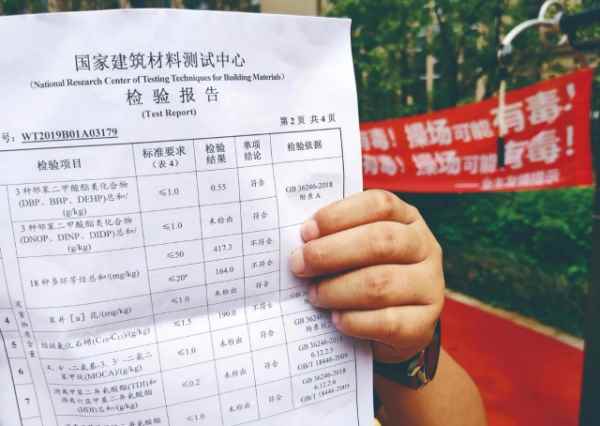 国家建筑材料测试中心
(National Research Center of Testing Techniques for Building Materials)
检 验 报 告
(Test Report)
号: WT2019B01A03179
第 2 页 共 4 页
检验项目
标准要求
(表 4)
检验
结果
单项
结论
检验依据
3 种邻苯二甲酸酯类化合物
(DBP、BBP、DEHP)总和/
(g/kg)
≤1.0
0.55
符合
GB 36246-2018
附录 A
3 种邻苯二甲酸酯类化合物
(DNOP、DINP、DIDP)总和/
(g/kg)
≤1.0
未检出
符合
18 种多环芳烃总和/(mg/kg)
≤50
417.2
不符合
≤20
164.0
不符合
4
苯并[a]芘/(mg/kg)
≤1.0
未检出
符合
5
短链氯化石蜡(C10-C13)/(g/kg)
≤1.5
190.0
不符合
GB 36246
附录
6
(MOCA)/(g/kg)
≤1.0
未检出
符合
GB 36246-2018
6.12.5
GB/T 18446-2009
7
(HDI)总和/(g/kg)
≤0.2
未检出
符合
GB 36246-2018
6.12.6
GB/T 18446-2009
≤1.0
未检出
符合
有毒！操场可能有毒！
有毒！操场可能有毒！